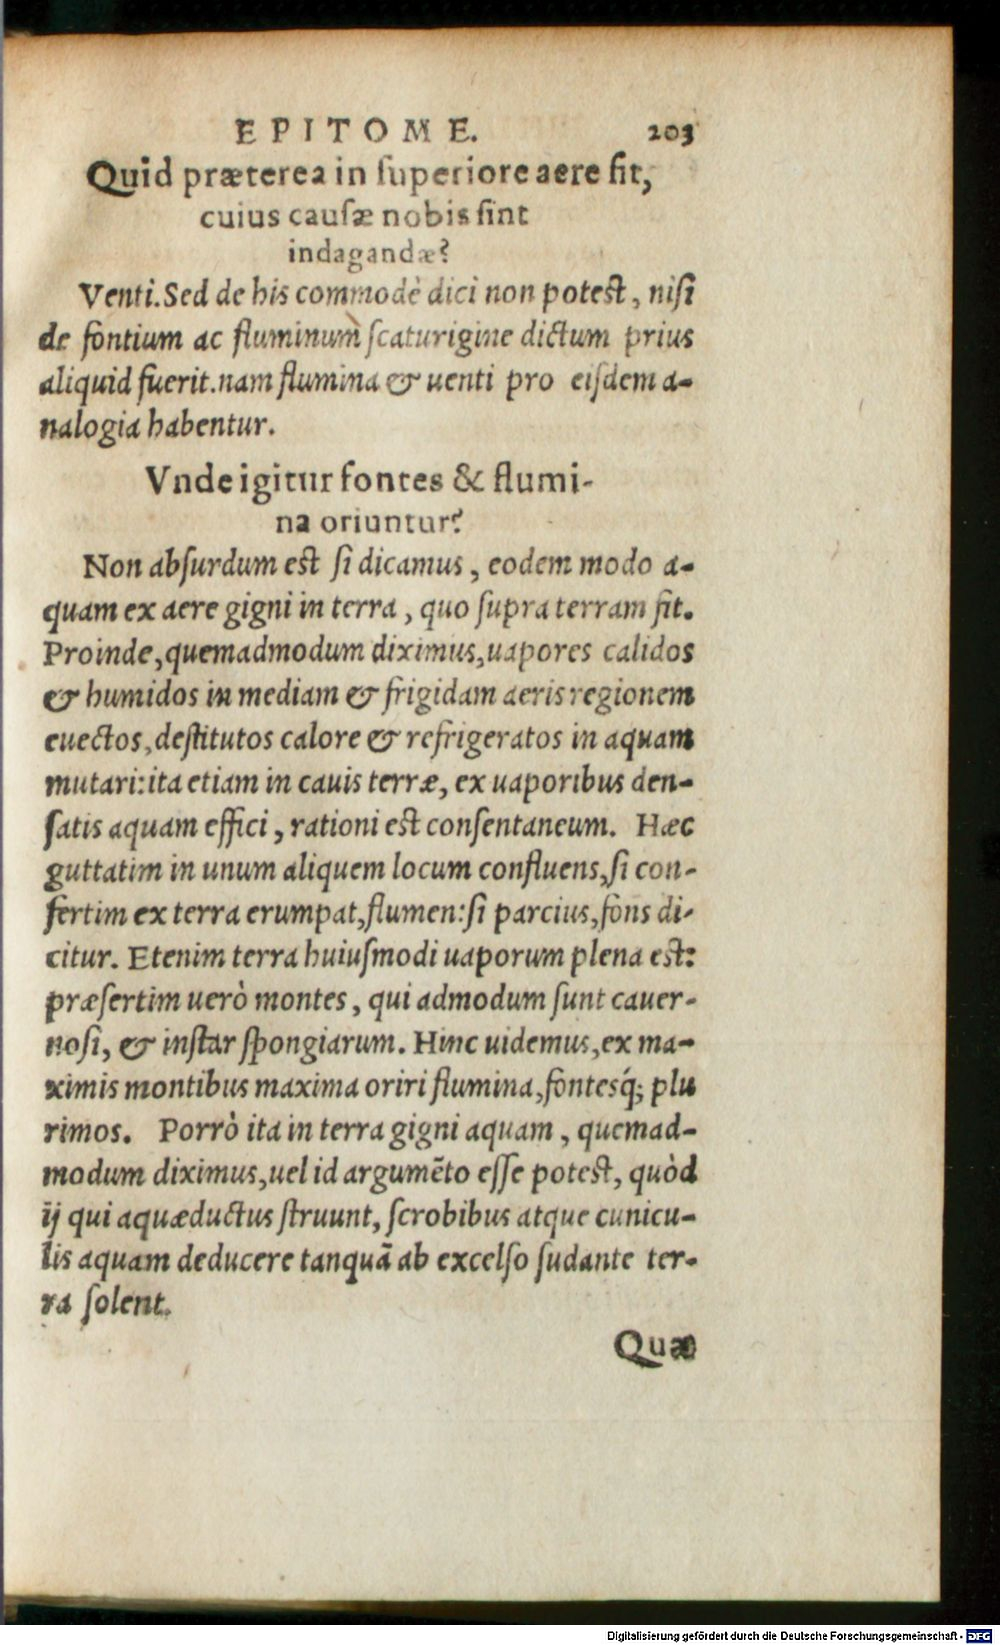 EPITOME. 203
Quid præterea in ſuperiore aere fit,
cuius cauſæ nobis ſint
indagandæ?
Venti. Sed de his commodè dici non poteſt, niſi
de fontium ac fluminum ſcaturigine dictum prius
aliquid fuerit. nam flumina & uenti pro eiſdem a-
nalogia habentur.
Vnde igitur fontes & flumi-
na oriuntur?
Non abſurdum eſt ſi dicamus, eodem modo a-
quam ex aere gigni in terra, quo ſupra terram fit.
Proinde, quemadmodum diximus, uapores calidos
& humidos in mediam & frigidam aeris regionem
euectos, deſtitutos calore & refrigeratos in aquam
mutari: ita etiam in cauis terræ, ex uaporibus den-
ſatis aquam effici, rationi eſt conſentaneum. Hæc
guttatim in unum aliquem locum confluens, ſi con-
fertim ex terra erumpat, flumen: ſi parcius, fons di-
citur. Etenim terra huiuſmodi uaporum plena eſt:
præſertim uerò montes, qui admodum ſunt cauer-
noſi, & inſtar ſpongiarum. Hinc uidemus, ex ma-
ximis montibus maxima oriri flumina, fontesq́; plu
rimos. Porrò ita in terra gigni aquam, quemad-
modum diximus, uel id argumēto eſſe poteſt, quòd
ij qui aquæductus ſtruunt, ſcrobibus atque cunicu-
lis aquam deducere tanquā ab excelſo ſudante ter-
ra ſolent.
Quæ
Digitalisierung gefördert durch die Deutsche Forschungsgemeinschaft - DFG